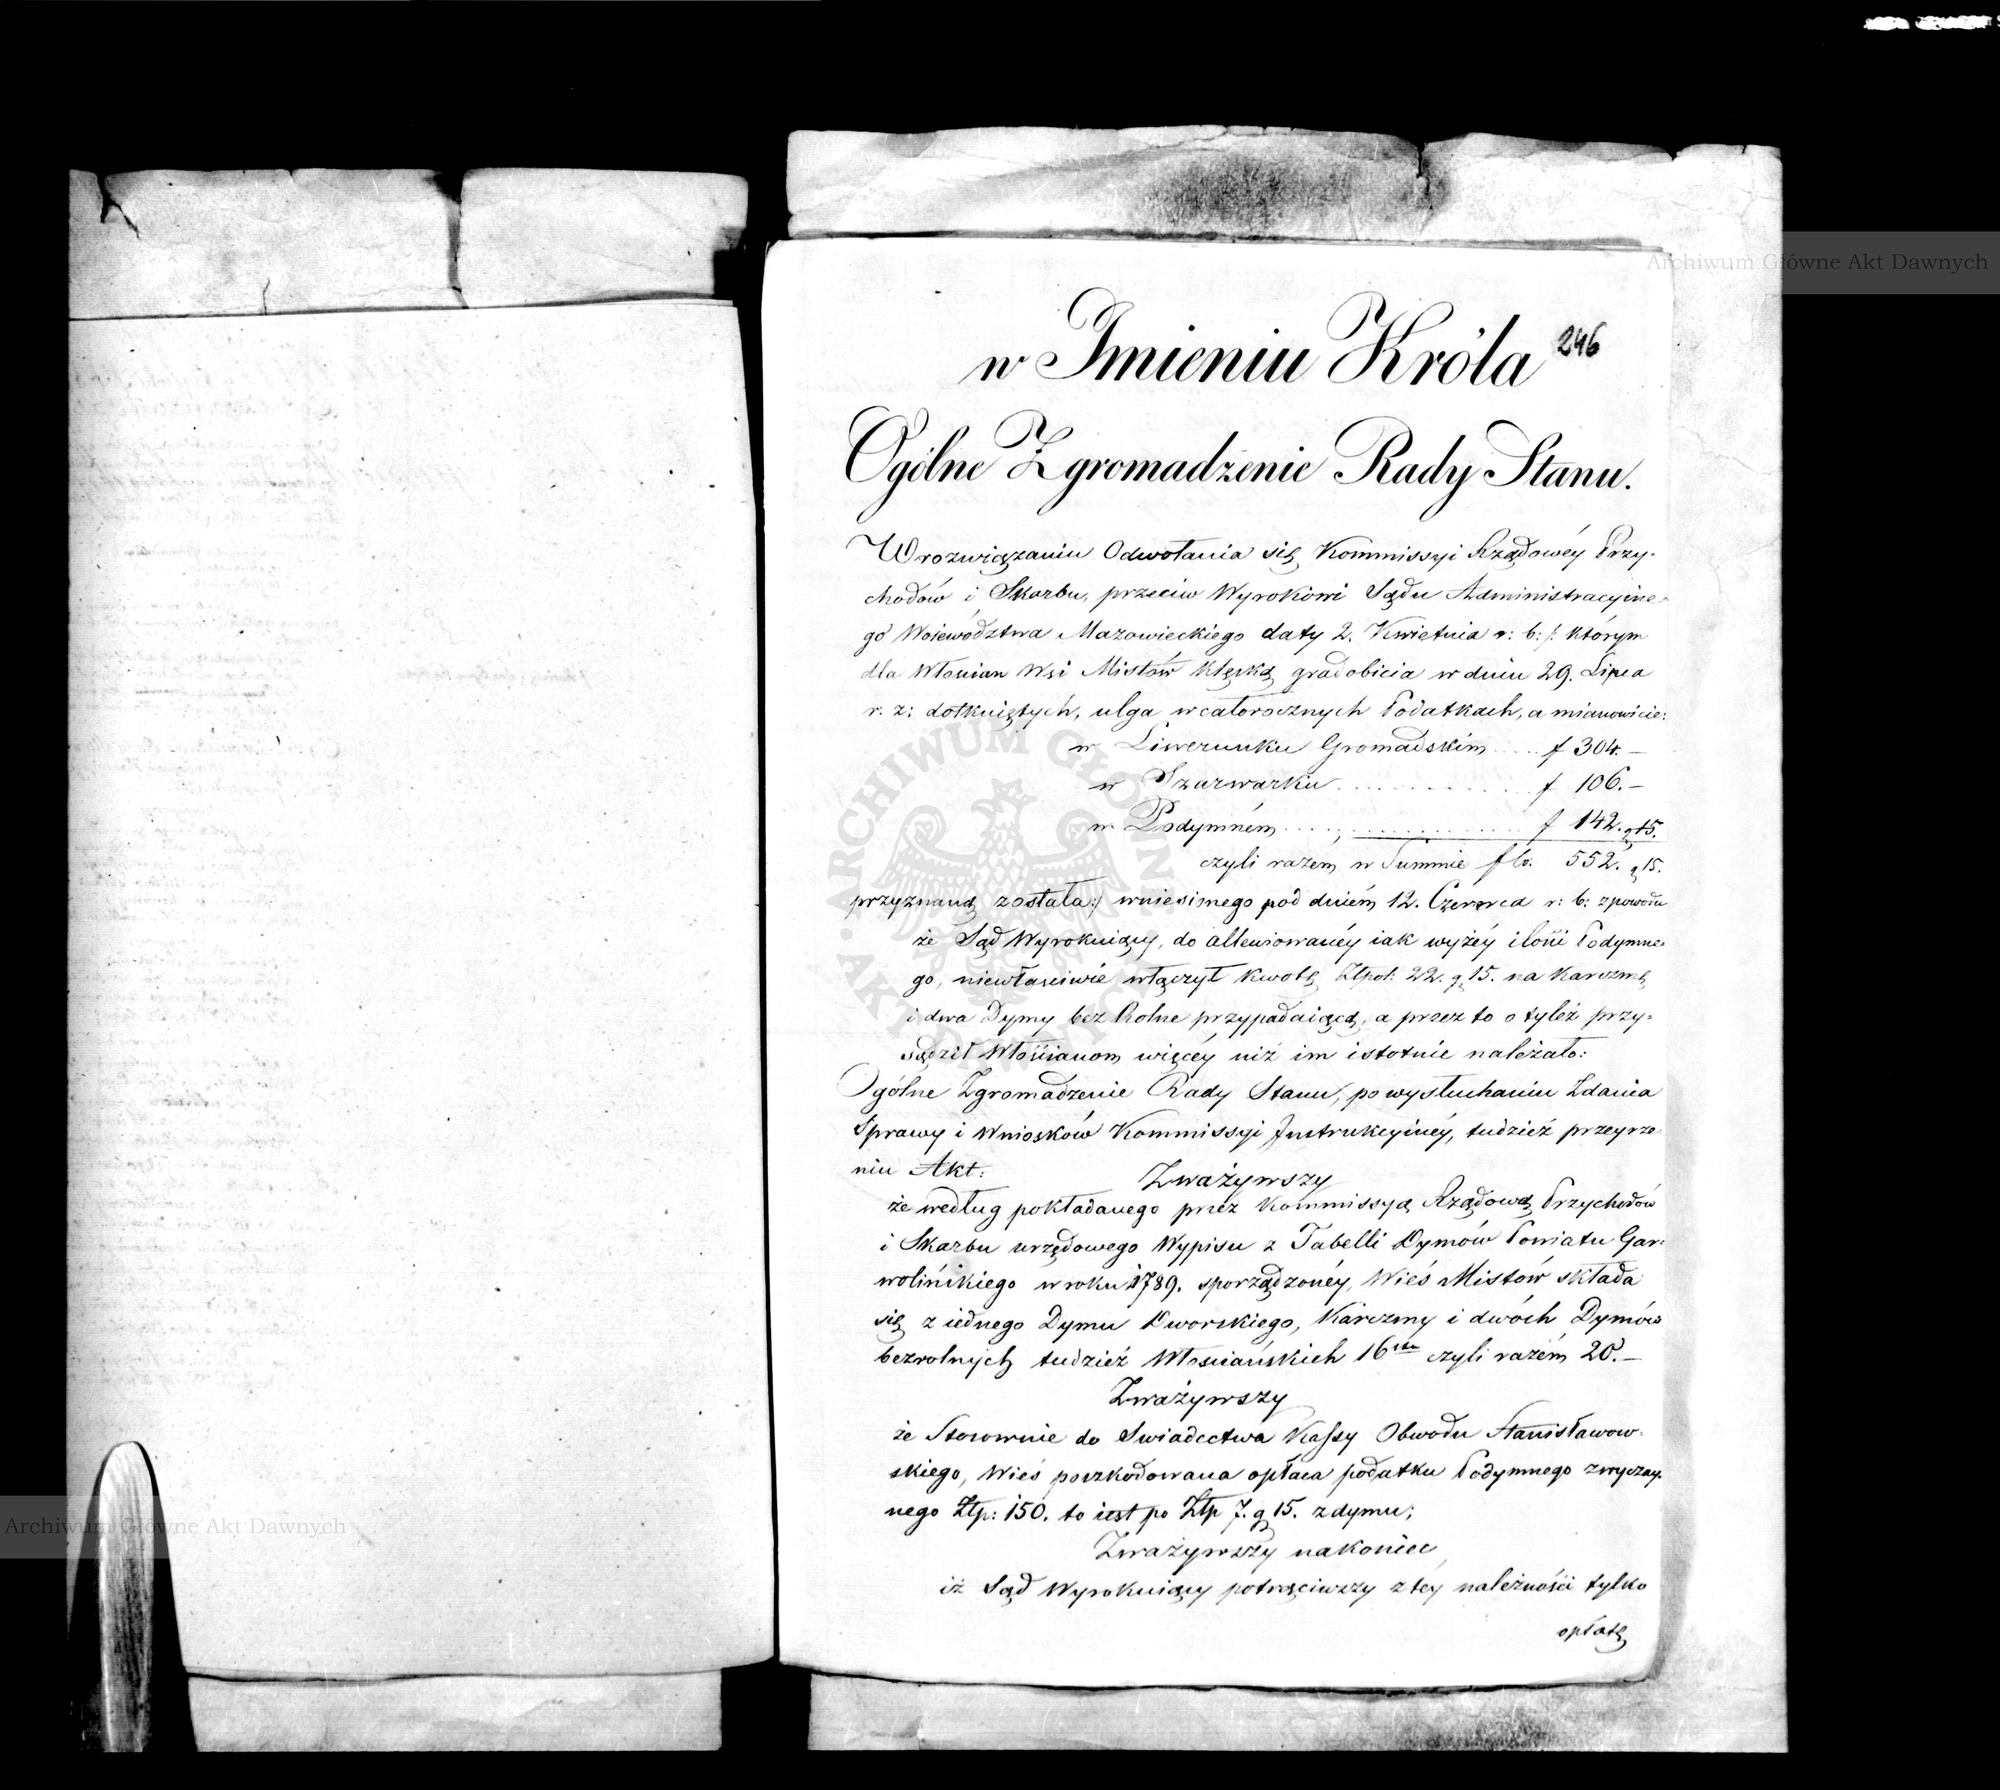 Archiwum Główne Akt Dawnych
246
w Imieniu Króla
Ogólne Zgromadzenie Rady Stanu.
W rozwiązaniu Odwołania się Kommissyi Rządowéy Przy-
chodów i Skarbu, przeciw Wyrokowi Sądu Administracyine-
go Woiewodztwa Mazowieckiego daty 2. Kwietnia r: b: /: którym
dla Włościan Wsi Mistów klęską gradobicia w dniu 29. Lipca
r. z: dotkniętych, ulga w całorocznych Podatkach, a mianowicie:
w Liwerunku Gromadskim .... f 304. —
w Szarwarku ............ f 106. —
w Podymném ............ f 142. g 15.
czyli razem w Summie flo. 552. g 15.
przyznaną została:/ wniesionego pod dniém 12. Czerwca r: b: z powodu
że Sąd Wyrokuiący, do allewiowanéy iak wyżéy ilości Podymne-
go, niewłaściwie włączył kwotę Złpol: 22. g 15. na Karczmę
i dwa Dymy bez Rolne przypadaiącą, a przez to o tyleż przy-
sądził Włościanom więcéy niż im istotnie należało:
Ogólne Zgromadzenie Rady Stanu, po wysłuchaniu Zdania
Sprawy i Wniosków Kommissyi Instrukcyinéy, tudzież przeyrze-
niu Akt:
Zważywszy
że według pokładanego przez Kommissyą Rządową Przychodów
i Skarbu urzędowego Wypisu z Tabelli Dymów Powiatu Gar-
wolińskiego w roku 1789. sporządzonéy, Wieś Mistów składa
się z iednego Dymu Dworskiego, Karczmy i dwóch Dymów
bezrolnych tudzież Włościańskich 16stu czyli razém 20. —
Zważywszy
że Stosownie do Swiadectwa Kassy Obwodu Stanisławow-
skiego, Wieś poszkodowana opłaca podatku Podymnego zwyczay-
nego Złp: 150. to iest po Złp 7. g 15. z dymu;
Zważywszy nakoniec
iż Sąd Wyrokuiący potrąciwszy z téy należności tylko
opłatę
Archiwum Główne Akt Dawnych
ARCHIWUM GŁÓWNE AKT DAWNYCH